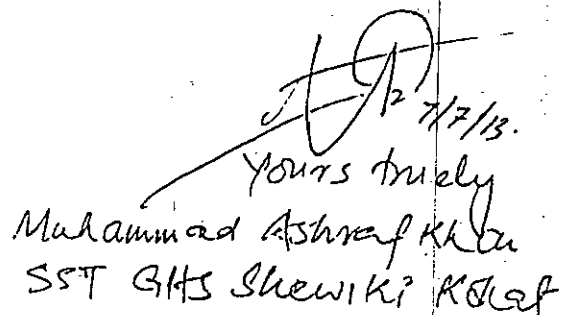 7/7/13.
Yours truely
Muhammad Ashraf Khan
SST GHS Shewiki Kohat